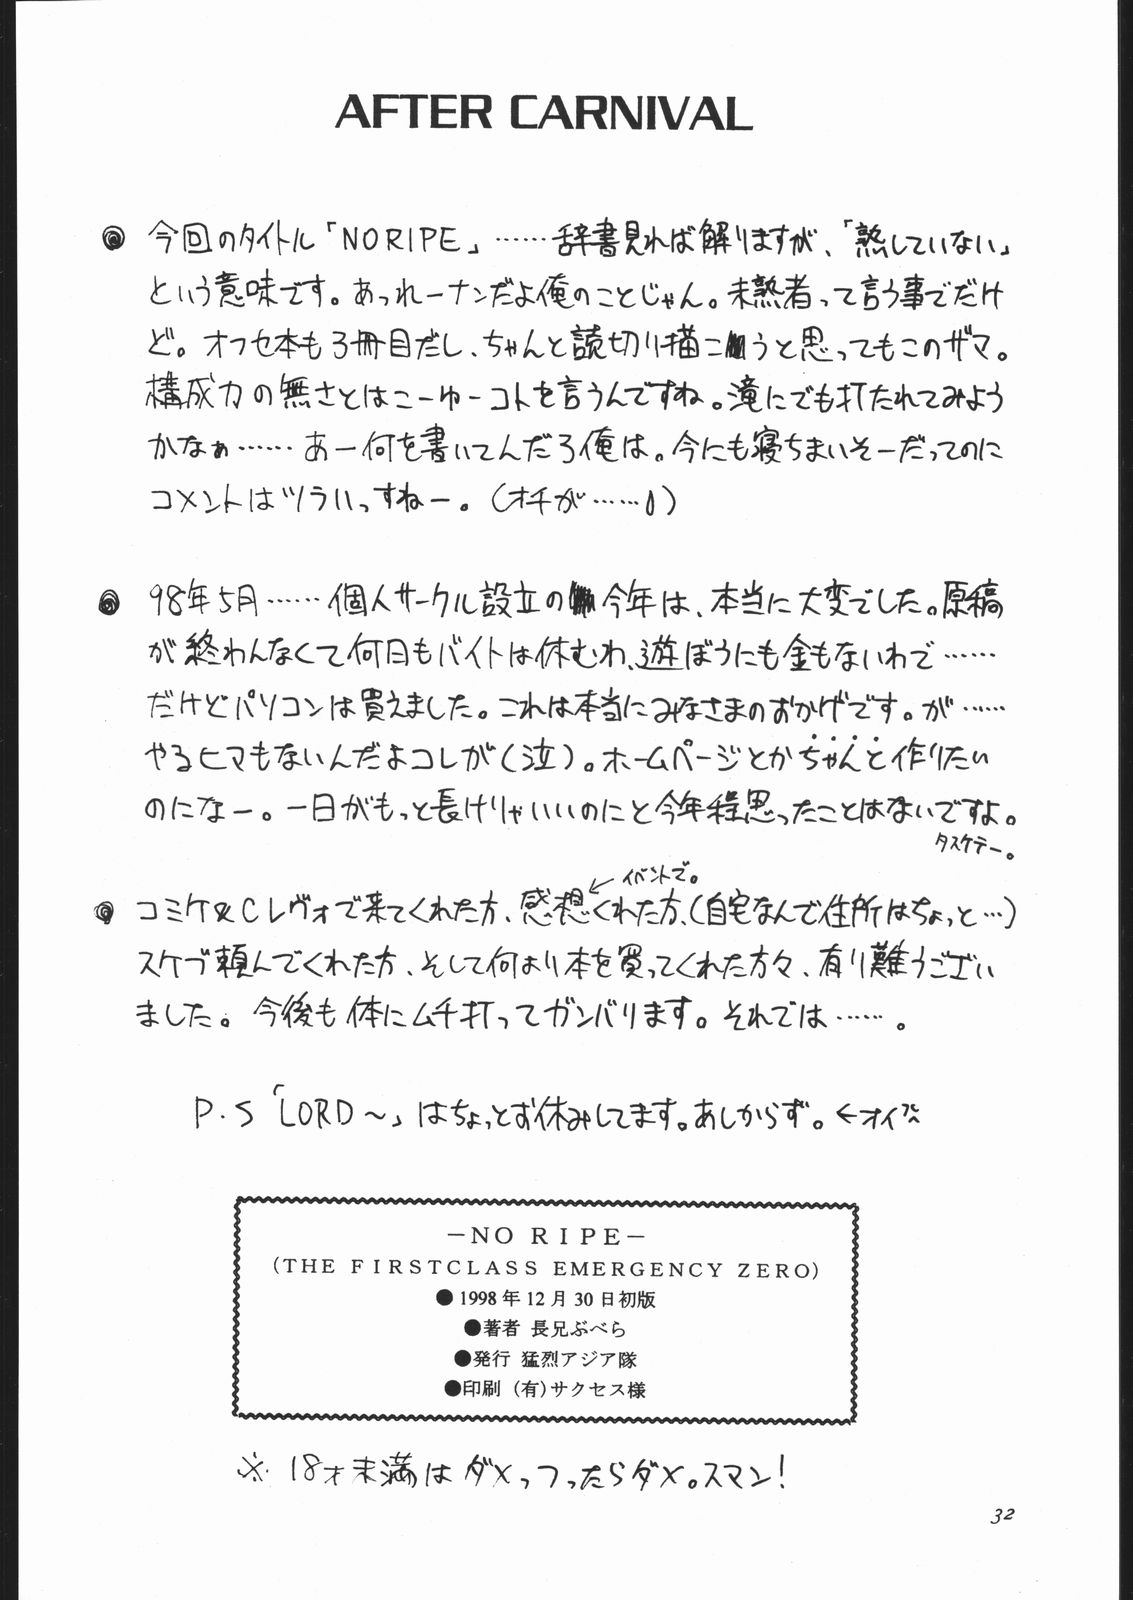 AFTER CARNIVAL
◎ 今回のタイトル「NORIPE」……辞書見れば解りますが、「熟していない」
という意味です。あっれーナンだよ俺のことじゃん。未熟者って言う事でだけ
ど。オフセ本も3冊目だし、ちゃんと読切り描こうと思ってもこのザマ。
構成力の無さとはこーゆーコトを言うんですね。滝にでも打たれてみよう
かなぁ……あー何を書いてんだろ俺は。今にも寝ちまいそーだってのに
コメントはツラいっすねー。(オチが……)
◎ 98年5月……個人サークル設立の今年は、本当に大変でした。原稿
が終わんなくて何日もバイトは休むわ、遊ぼうにも金もないわで……
だけどパソコンは買えました。これは本当にみなさまのおかげです。が……
やるヒマもないんだよコレが(泣)。ホームページとかちゃんと作りたい
のになー。一日がもっと長けりゃいいのにと今年程思ったことはないですよ。
タスケテー。
←イベントで。
◎ コミケ&Cレヴォで来てくれた方、感想くれた方、(自宅なんで住所はちょっと…)
スケブ頼んでくれた方、そして何より本を買ってくれた方々、有り難うござい
ました。今後も体にムチ打ってガンバります。それでは……。
P.S「LORD~」はちょっとお休みしてます。あしからず。←オイ
-NO RIPE-
(THE FIRSTCLASS EMERGENCY ZERO)
●1998年12月30日初版
●著者 長兄ぶべら
●発行 猛烈アジア隊
●印刷 (有)サクセス様
※ 18才未満はダメっつったらダメ。スマン!
32